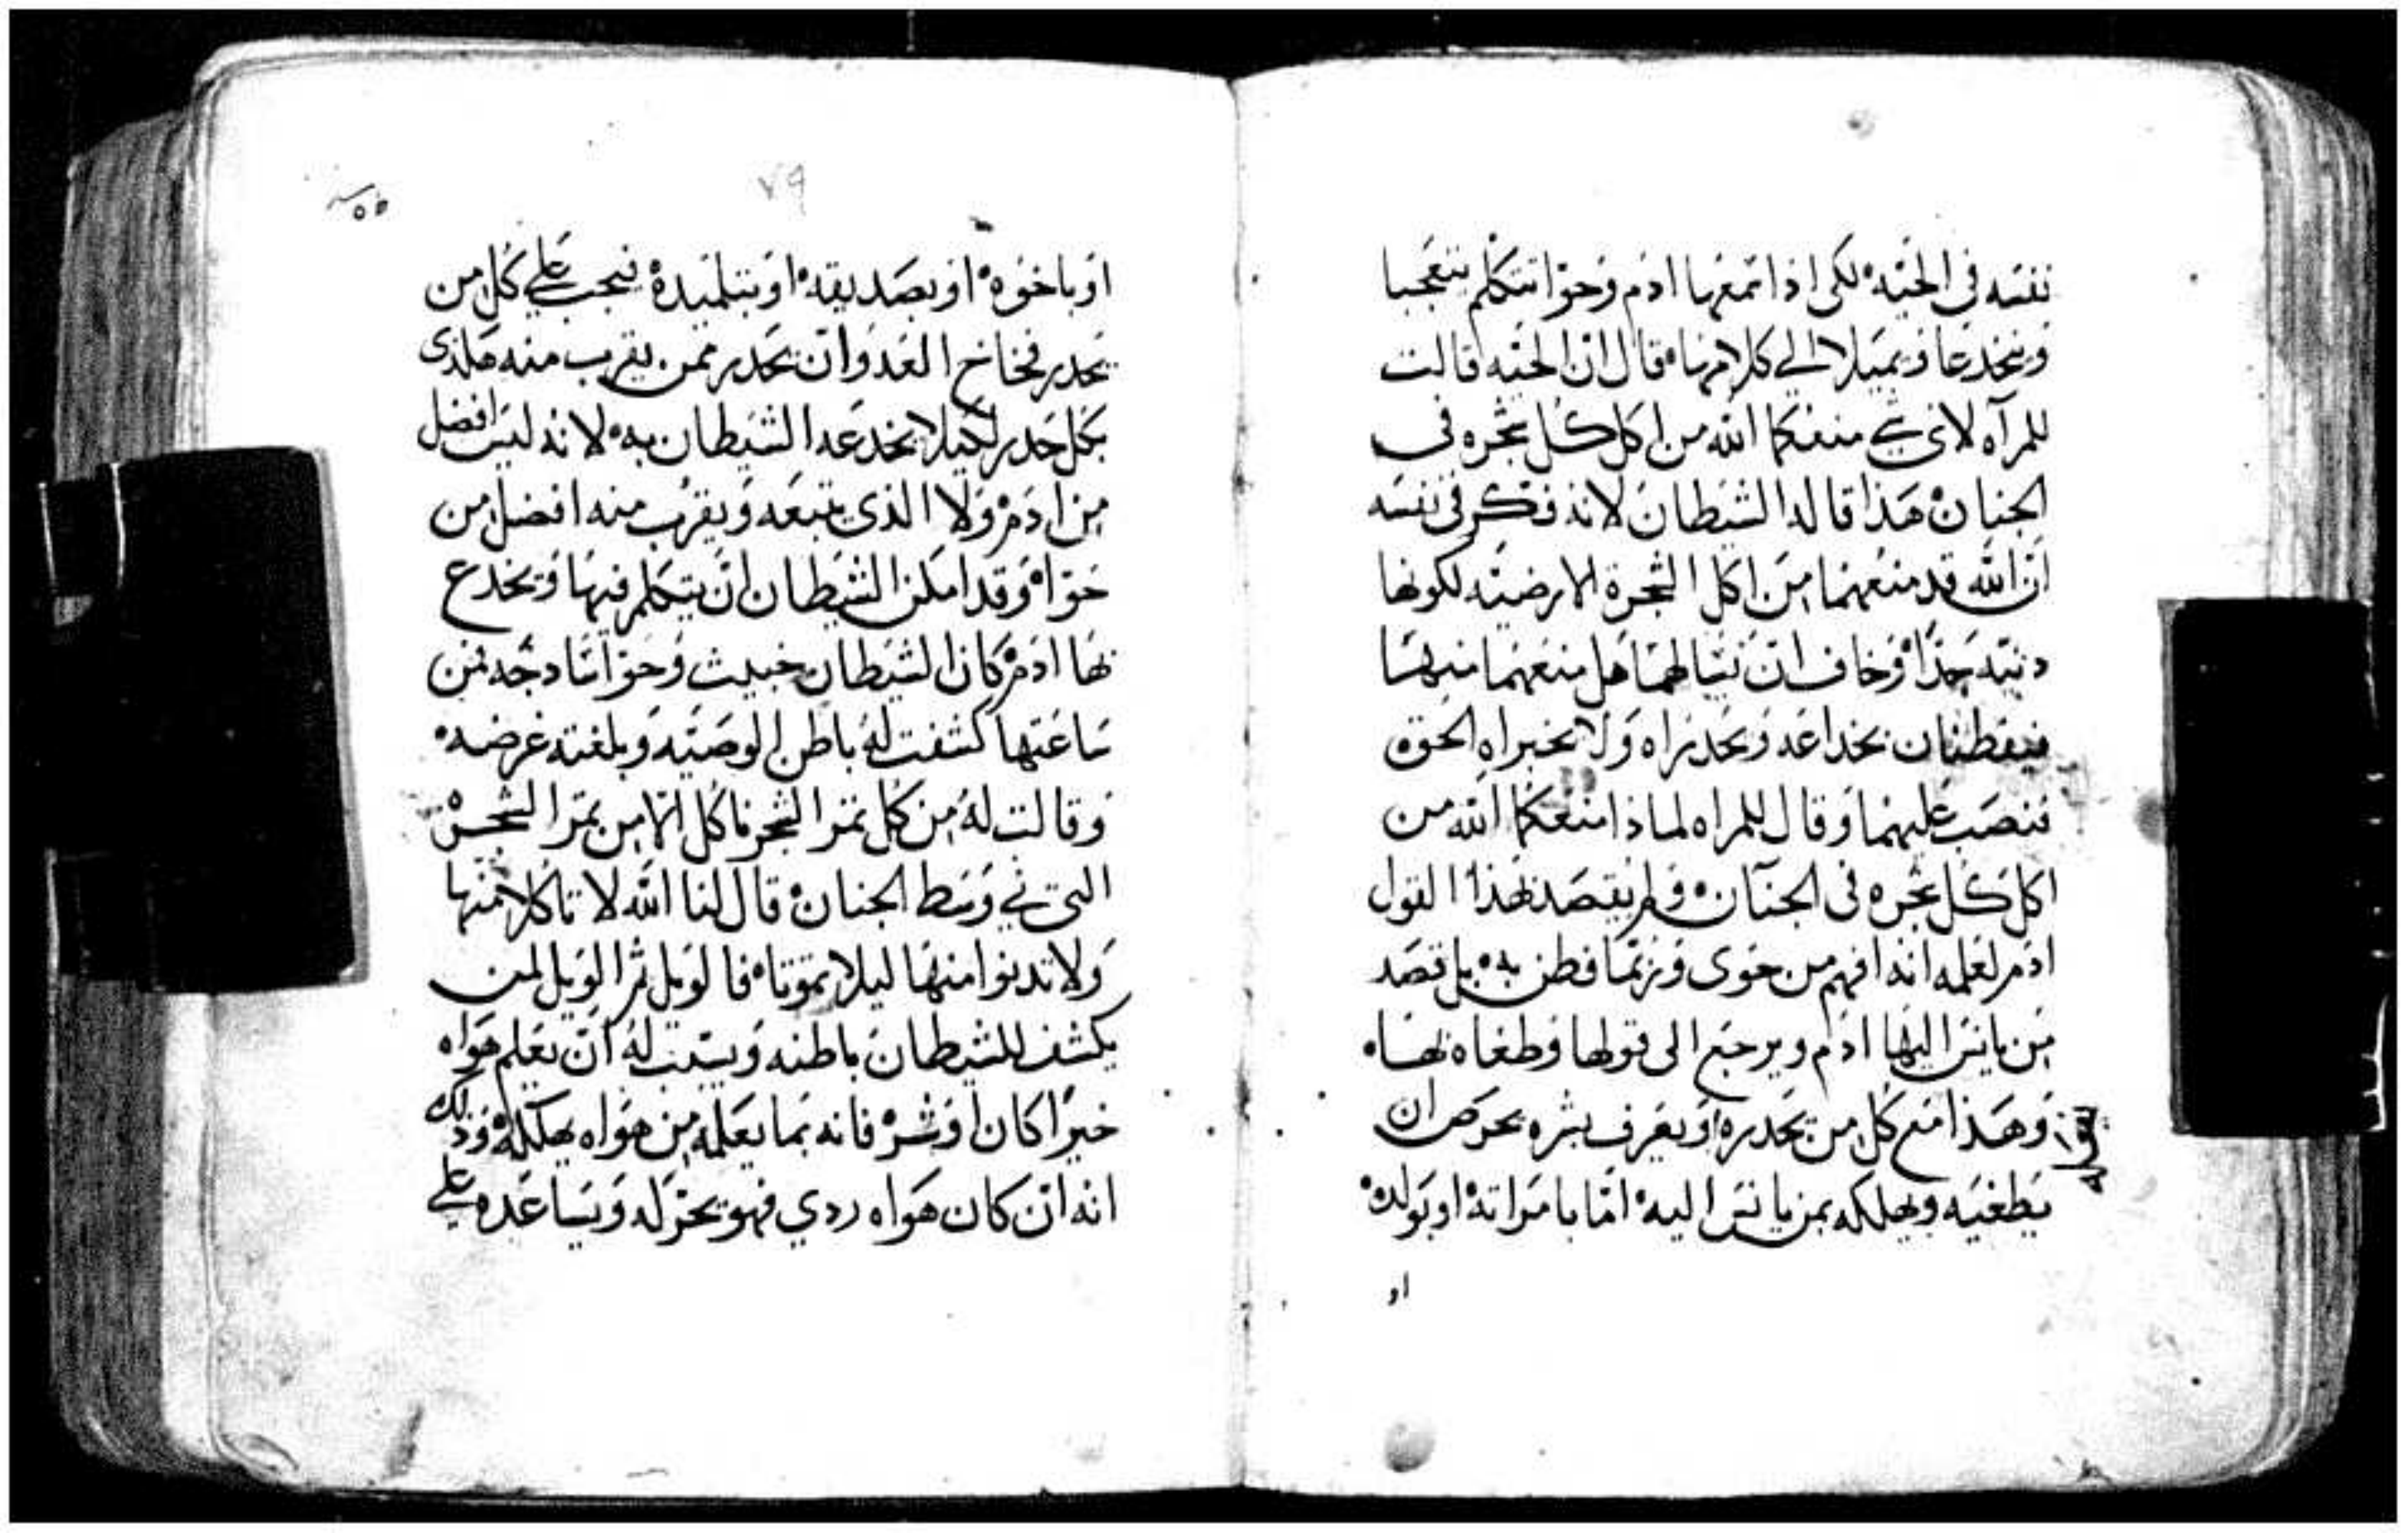 نفسه في الحيه لكي اذا سمعها ادم وحوا تتكلم يتعجبا
وينخدعا ويميلا الي كلامها قال ان الحيه قالت
للمرآه لاي شي منعكما الله من اكل كل شجره في
الجنان هذا قاله الشيطان لانه فكر في نفسه
ان الله قد منعهما من اكل الشجرة الارضيه لكونها
دنيه جدا وخاف ان يسالهما هل منعهما منها
فيفطنان بخداعه ويحدراه ولا يخبراه الحق
فنصب عليهما وقال للمراه لماذا منعكما الله من
اكل كل شجره في الجنان ولم يقصد بهذا القول
ادم لعلمه انه افهم من حوى وربما فطن به بل قصد
من يانس اليها ادم ويرجع الى قولها وطغاه بها
وهذا مع كل من يحدره ويعرف بشره يحرص ان
يطغيه ويهلكه بمن يانس اليه اما بامراته او بولده
او
٧٩
او باخوه او بصديقه او بتلميده فيجب علي كل من
يحدر فخاخ العدو ان يحدر ممن يقرب منه
بكل حدر لكيلا يخدعه الشيطان به لانه ليس افضل
من ادم ولا الذي يتبعه ويقرب منه افضل من
حوا وقد امكن الشيطان ان يتكلم فيها ويخدع
بها ادم كان الشيطان خبيث وحوا سادجه فمن
ساعتها كشفت له باطن الوصيه وبلغته غرضه
وقالت له من كل ثمر الشجر ناكل الا من ثمر الشجره
التي في وسط الجنان قال لنا الله لا تاكلا منها
ولا تدنوا منها ليلا تموتا فالويل ثم الويل لمن
يكشف للشيطان باطنه ويسبب له ان يعلم هواه
خيرا كان او شر فانه بما يعلمه من هواه يهلكه وذلك
انه ان كان هواه ردي فهو يحركه ويساعده علي